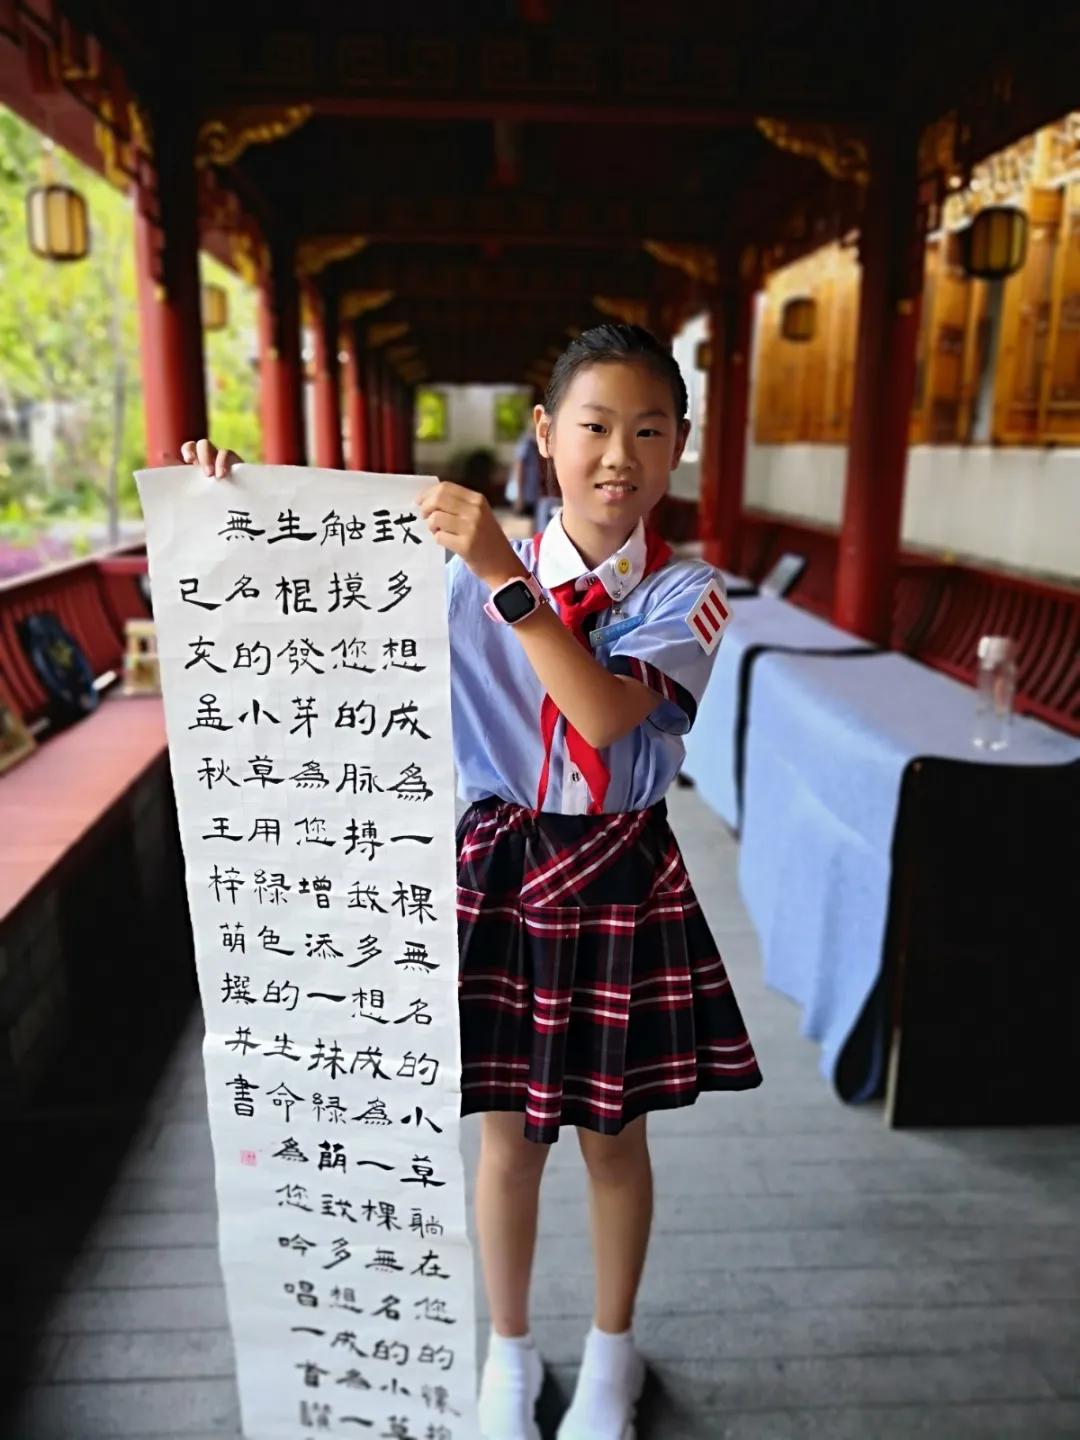 我多想成為一棵無名的小草躺在您的懷抱
触摸您的脉搏我多想成為一棵無名的小草
生根發芽為您增添一抹緑萌我多想成為一
無名的小草用緑色的生命為您吟唱一首讚
己亥孟秋王梓萌撰并書